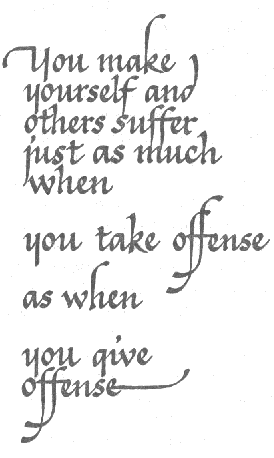 You make
yourself and
others suffer
just as much
when
you take offense
as when
you give
offense